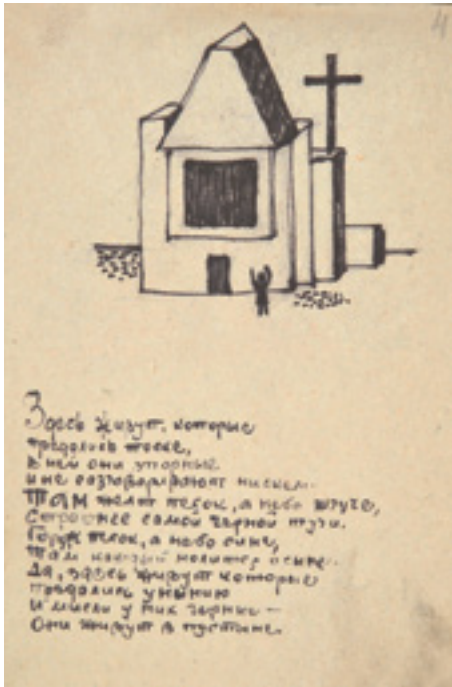 4
Здесь живут, которые
предались тоске,
В ней они упорные
и не разговаривают ни с кем.
Там желт песок, а небо
самой черной тучи.
песок, а небо сине,
Там каждый
Да, здесь живут которые
предались унынию
И мысли у них черные —
Они живут в пустыне.